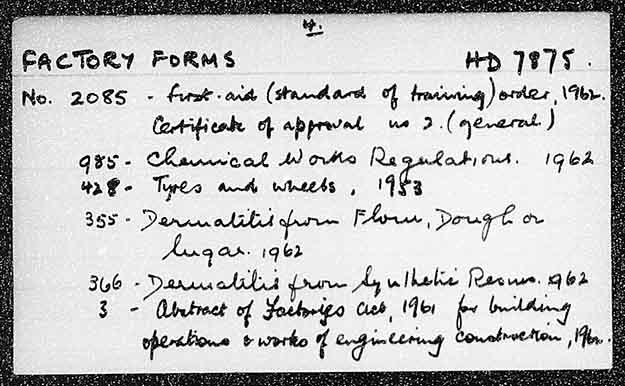 4.
FACTORY FORMS HD 7875.
No. 2085 - first-aid (standard of training) order, 1962.
Certificate of approval no 2. (general.)
985 - Chemical Works Regulations. 1962
428 - Tyres and wheels, 1953
355 - Dermatitis from Flour, Dough or
Sugar. 1962
366 - Dermatitis from Synthetic Resins. 1962
3 - Abstract of Factories Act, 1961 for building
operations & works of engineering construction,